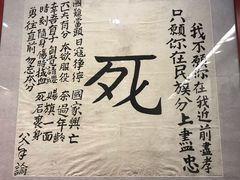 我不願你在我近前盡孝
只願你在民族分上盡忠
死
國難當頭日寇猙獰國家興亡
匹夫有分本欲服役奈過年齡
幸吾有子自覺請纓賜旗一面
時刻隨身傷時拭血死后裹身
勇往直前勿忘本分
父手諭